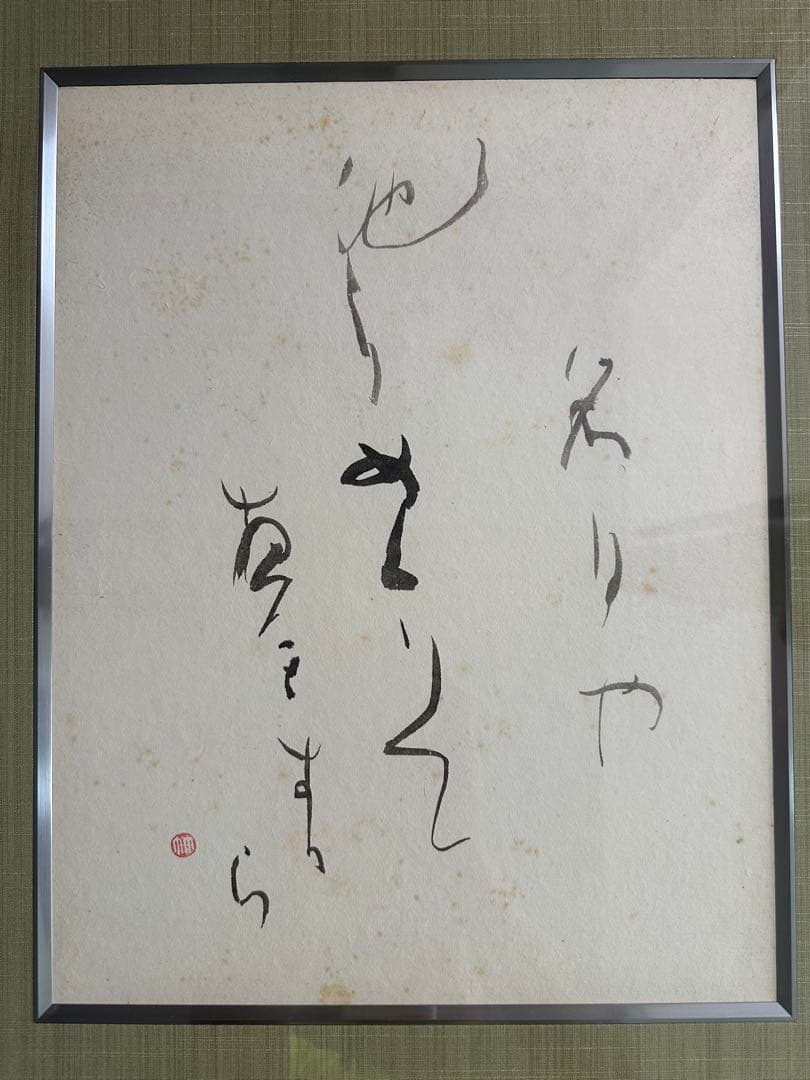 名月や
池をめくりて
夜もすから